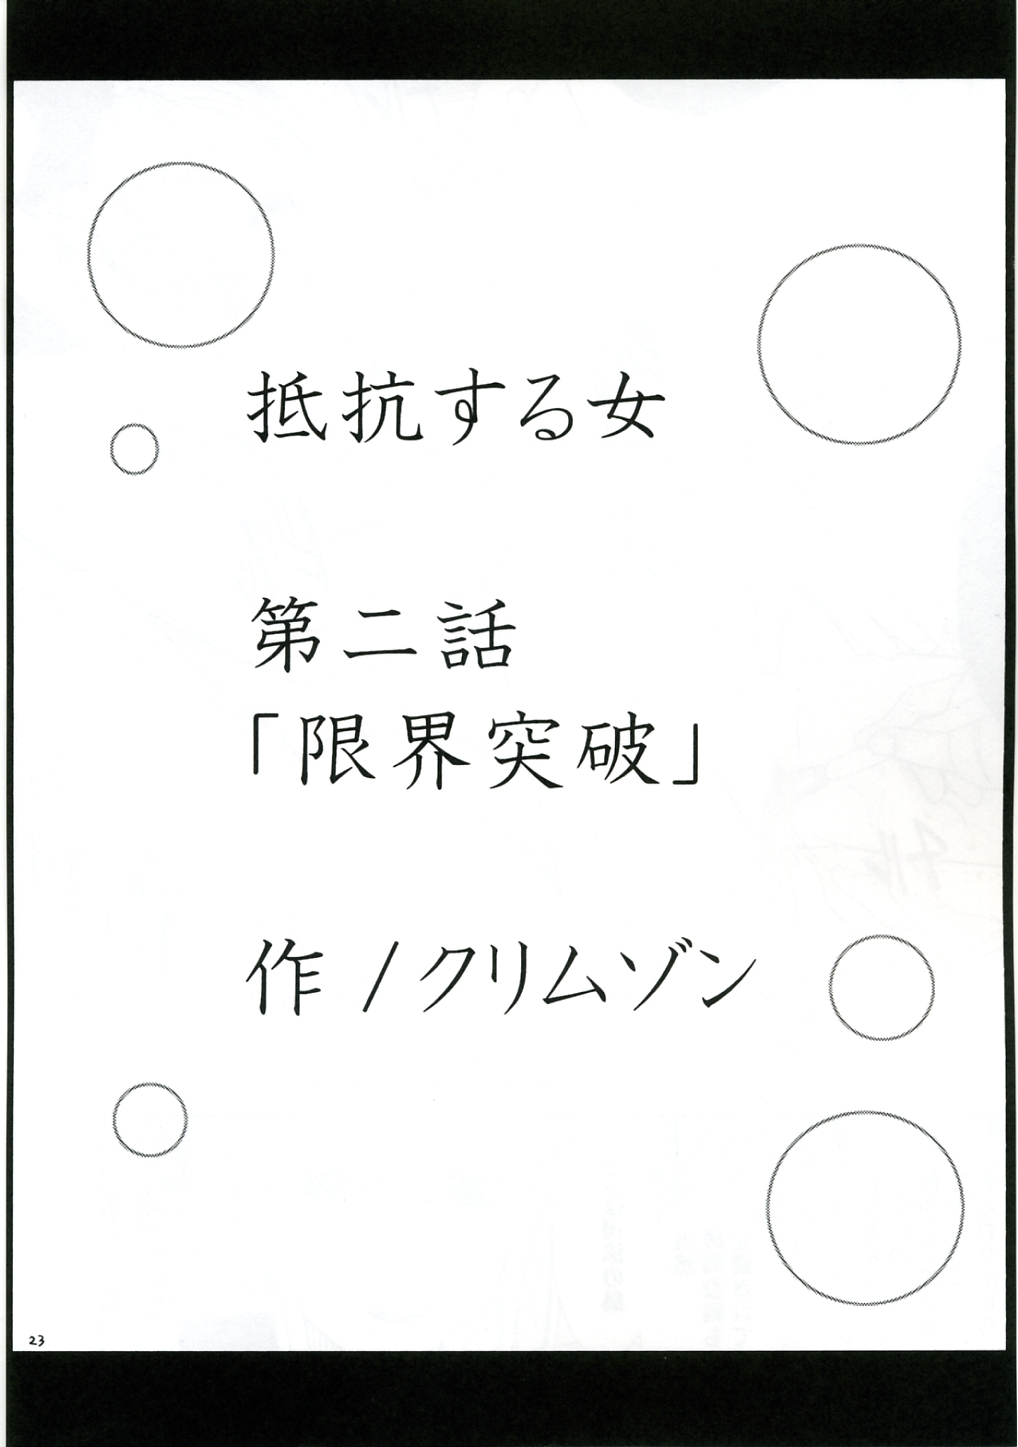 抵抗する女
第二話
「限界突破」
作／クリムゾン
23